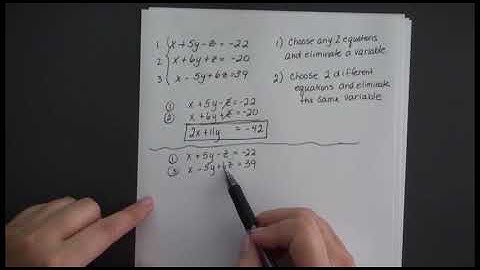 1 { x + 5y - z = -22
2 { x + 6y + z = -20
3 { x - 5y + 6z = 39
1) Choose any 2 equations
and eliminate a variable
2) Choose 2 different
equations and eliminate
the same variable
① x + 5y - z = -22
② x + 6y + z = -20
2x + 11y = -42
① x + 5y - z = -22
③ x - 5y + 6z = 39